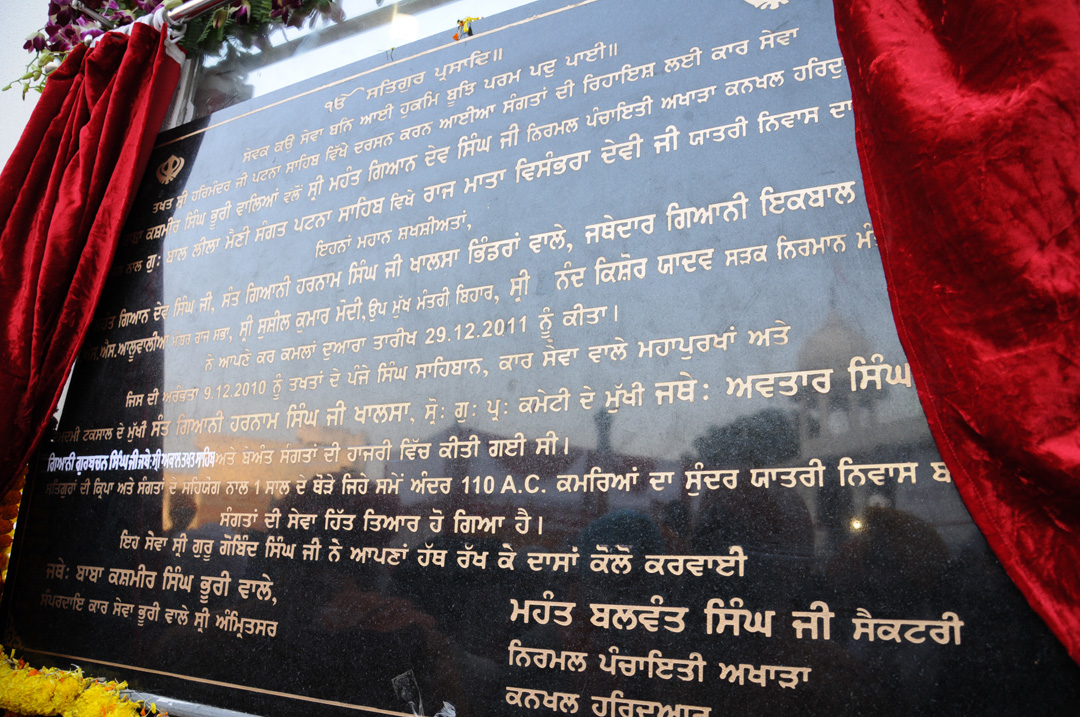 ੴ ਸਤਿਗੁਰ ਪ੍ਰਸਾਦਿ॥
ਸੇਵਕ ਕਉ ਸੇਵਾ ਬਨਿ ਆਈ ਹੁਕਮਿ ਬੂਝਿ ਪਰਮ ਪਦੁ ਪਾਈ॥
ਤਖਤ ਸ੍ਰੀ ਹਰਿਮੰਦਰ ਜੀ ਪਟਨਾ ਸਾਹਿਬ ਵਿੱਖੇ ਦਰਸਨ ਕਰਨ ਆਈਆ ਸੰਗਤਾਂ ਦੀ ਰਿਹਾਇਸ਼ ਲਈ ਕਾਰ ਸੇਵਾ
ਕਸ਼ਮੀਰ ਸਿੰਘ ਭੂਰੀ ਵਾਲਿਆਂ ਵਲੋਂ ਸ੍ਰੀ ਮਹੰਤ ਗਿਆਨ ਦੇਵ ਸਿੰਘ ਜੀ ਨਿਰਮਲ ਪੰਚਾਇਤੀ ਅਖਾੜਾ ਕਨਖਲ
ਨਾਲ ਗੁ: ਬਾਲ ਲੀਲਾ ਮੈਣੀ ਸੰਗਤ ਪਟਨਾ ਸਾਹਿਬ ਵਿਖੇ ਰਾਜ ਮਾਤਾ ਵਿਸੰਭਰਾ ਦੇਵੀ ਜੀ ਯਾਤਰੀ ਨਿਵਾਸ ਦਾ
ਇਹਨਾਂ ਮਹਾਨ ਸ਼ਖਸ਼ੀਅਤਾਂ,
ਗਿਆਨ ਦੇਵ ਸਿੰਘ ਜੀ, ਸੰਤ ਗਿਆਨੀ ਹਰਨਾਮ ਸਿੰਘ ਜੀ ਖਾਲਸਾ ਭਿੰਡਰਾਂ ਵਾਲੇ, ਜਥੇਦਾਰ ਗਿਆਨੀ ਇਕਬਾਲ
ਐਸ.ਆਲੂਵਾਲੀਆ ਮੈਂਬਰ ਰਾਜ ਸਭਾ, ਸ੍ਰੀ ਸੁਸ਼ੀਲ ਕੁਮਾਰ ਮੋਦੀ, ਉਪ ਮੁੱਖ ਮੰਤਰੀ ਬਿਹਾਰ, ਸ੍ਰੀ ਨੰਦ ਕਿਸ਼ੋਰ ਯਾਦਵ ਸੜਕ ਨਿਰਮਾਨ
ਨੇ ਆਪਣੇ ਕਰ ਕਮਲਾਂ ਦੁਆਰਾ ਤਾਰੀਖ 29.12.2011 ਨੂੰ ਕੀਤਾ।
ਜਿਸ ਦੀ ਅਰੰਭਤਾ 9.12.2010 ਨੂੰ ਤਖਤਾਂ ਦੇ ਪੰਜੇ ਸਿੰਘ ਸਾਹਿਬਾਨ, ਕਾਰ ਸੇਵਾ ਵਾਲੇ ਮਹਾਪੁਰਖਾਂ ਅਤੇ
ਦਮਦਮੀ ਟਕਸਾਲ ਦੇ ਮੁੱਖੀ ਸੰਤ ਗਿਆਨੀ ਹਰਨਾਮ ਸਿੰਘ ਜੀ ਖਾਲਸਾ, ਸ੍ਰੋ: ਗੁ: ਪ੍ਰ: ਕਮੇਟੀ ਦੇ ਮੁੱਖੀ ਜਥੇ: ਅਵਤਾਰ ਸਿੰਘ
ਗਿਆਨੀ ਗੁਰਬਚਨ ਸਿੰਘ ਜੀ ਜਥੇ: ਸ੍ਰੀ ਅਕਾਲ ਤਖਤ ਸਾਹਿਬ ਅਤੇ ਬੇਅੰਤ ਸੰਗਤਾਂ ਦੀ ਹਾਜਰੀ ਵਿੱਚ ਕੀਤੀ ਗਈ ਸੀ।
ਸਤਿਗੁਰਾਂ ਦੀ ਕ੍ਰਿਪਾ ਅਤੇ ਸੰਗਤਾਂ ਦੇ ਸਹਿਯੋਗ ਨਾਲ 1 ਸਾਲ ਦੇ ਥੋੜੇ ਜਿਹੇ ਸਮੇਂ ਅੰਦਰ 110 A.C. ਕਮਰਿਆਂ ਦਾ ਸੁੰਦਰ ਯਾਤਰੀ ਨਿਵਾਸ
ਸੰਗਤਾਂ ਦੀ ਸੇਵਾ ਹਿੱਤ ਤਿਆਰ ਹੋ ਗਿਆ ਹੈ।
ਇਹ ਸੇਵਾ ਸ੍ਰੀ ਗੁਰੂ ਗੋਬਿੰਦ ਸਿੰਘ ਜੀ ਨੇ ਆਪਣਾਂ ਹੱਥ ਰੱਖ ਕੇ ਦਾਸਾਂ ਕੋਲੋ ਕਰਵਾਈ
ਜਥੇ: ਬਾਬਾ ਕਸ਼ਮੀਰ ਸਿੰਘ ਭੂਰੀ ਵਾਲੇ,
ਸੰਪਰਦਾਇ ਕਾਰ ਸੇਵਾ ਭੂਰੀ ਵਾਲੇ ਸ੍ਰੀ ਅੰਮ੍ਰਿਤਸਰ
ਮਹੰਤ ਬਲਵੰਤ ਸਿੰਘ ਜੀ ਸੈਕਟਰੀ
ਨਿਰਮਲ ਪੰਚਾਇਤੀ ਅਖਾੜਾ
ਕਨਖਲ ਹਰਿਦੁਆਰ